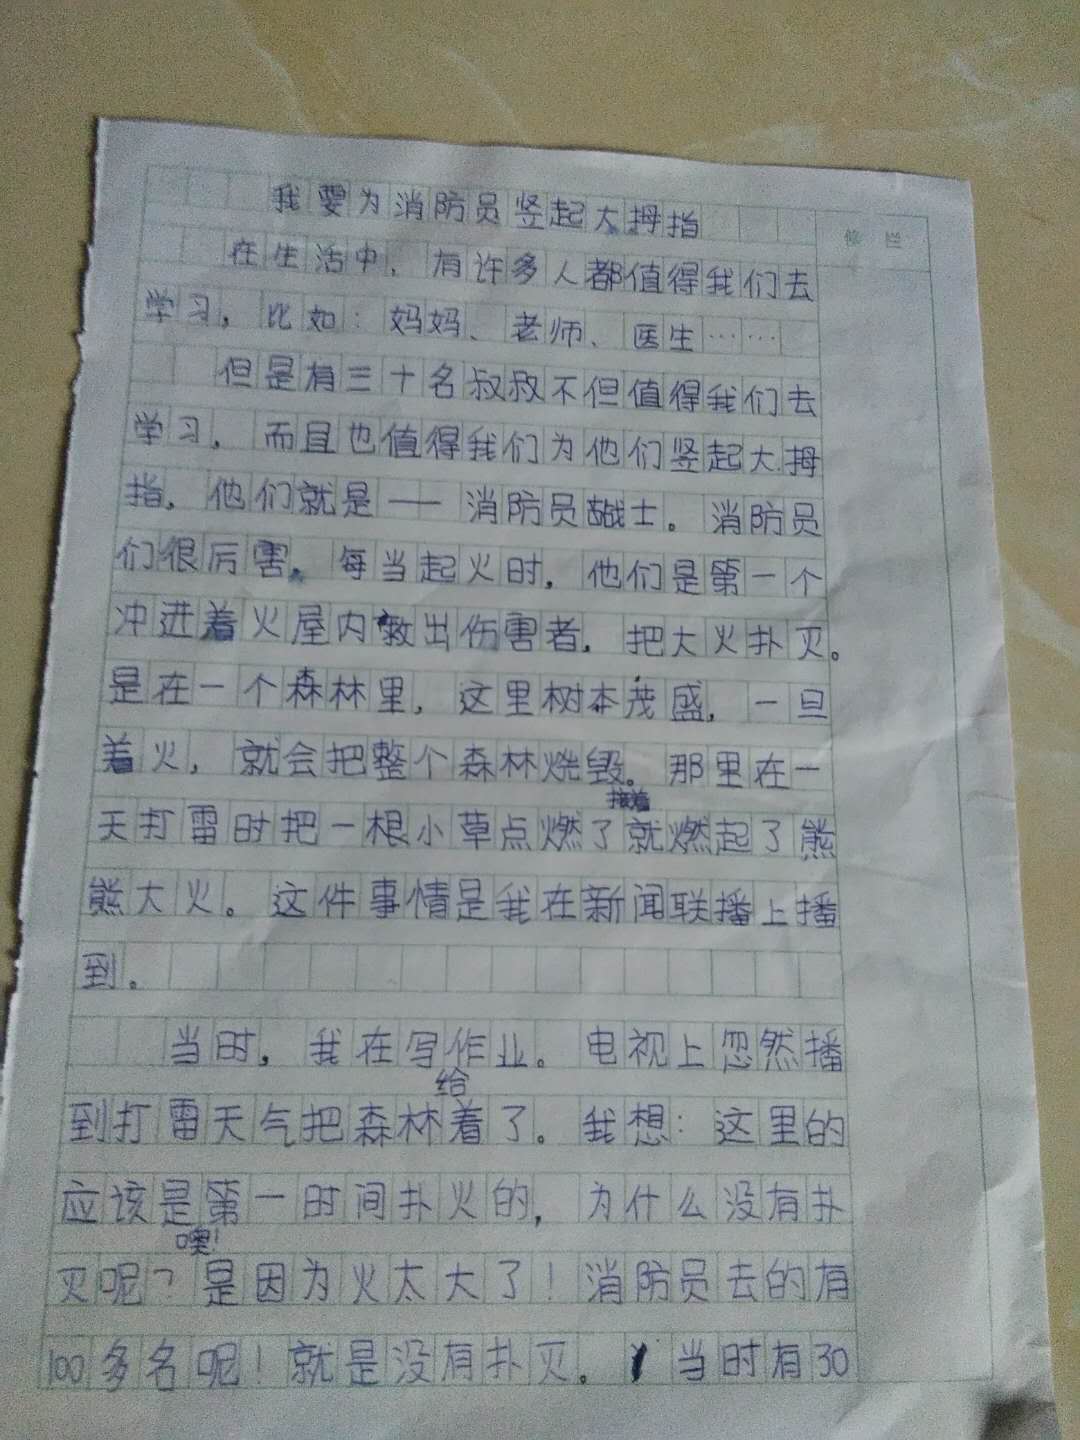 我要为消防员竖起大拇指
在生活中，有许多人都值得我们去
学习，比如：妈妈、老师、医生……
但是有三十名叔叔不但值得我们去
学习，而且也值得我们为他们竖起大拇
指，他们就是——消防员战士。消防员
们很厉害，每当起火时，他们是第一个
冲进着火屋内救出伤害者，把大火扑灭。
是在一个森林里，这里树本茂盛，一旦
着火，就会把整个森林烧毁。那里在一
接着
天打雷时把一根小草点燃了就燃起了熊
熊大火。这件事情是我在新闻联播上播
到。
当时，我在写作业。电视上忽然播
给
到打雷天气把森林着了。我想：这里的
应该是第一时间扑火的，为什么没有扑
噢！
灭呢？是因为火太大了！消防员去的有
100多名呢！就是没有扑灭。当时有30
修 栏